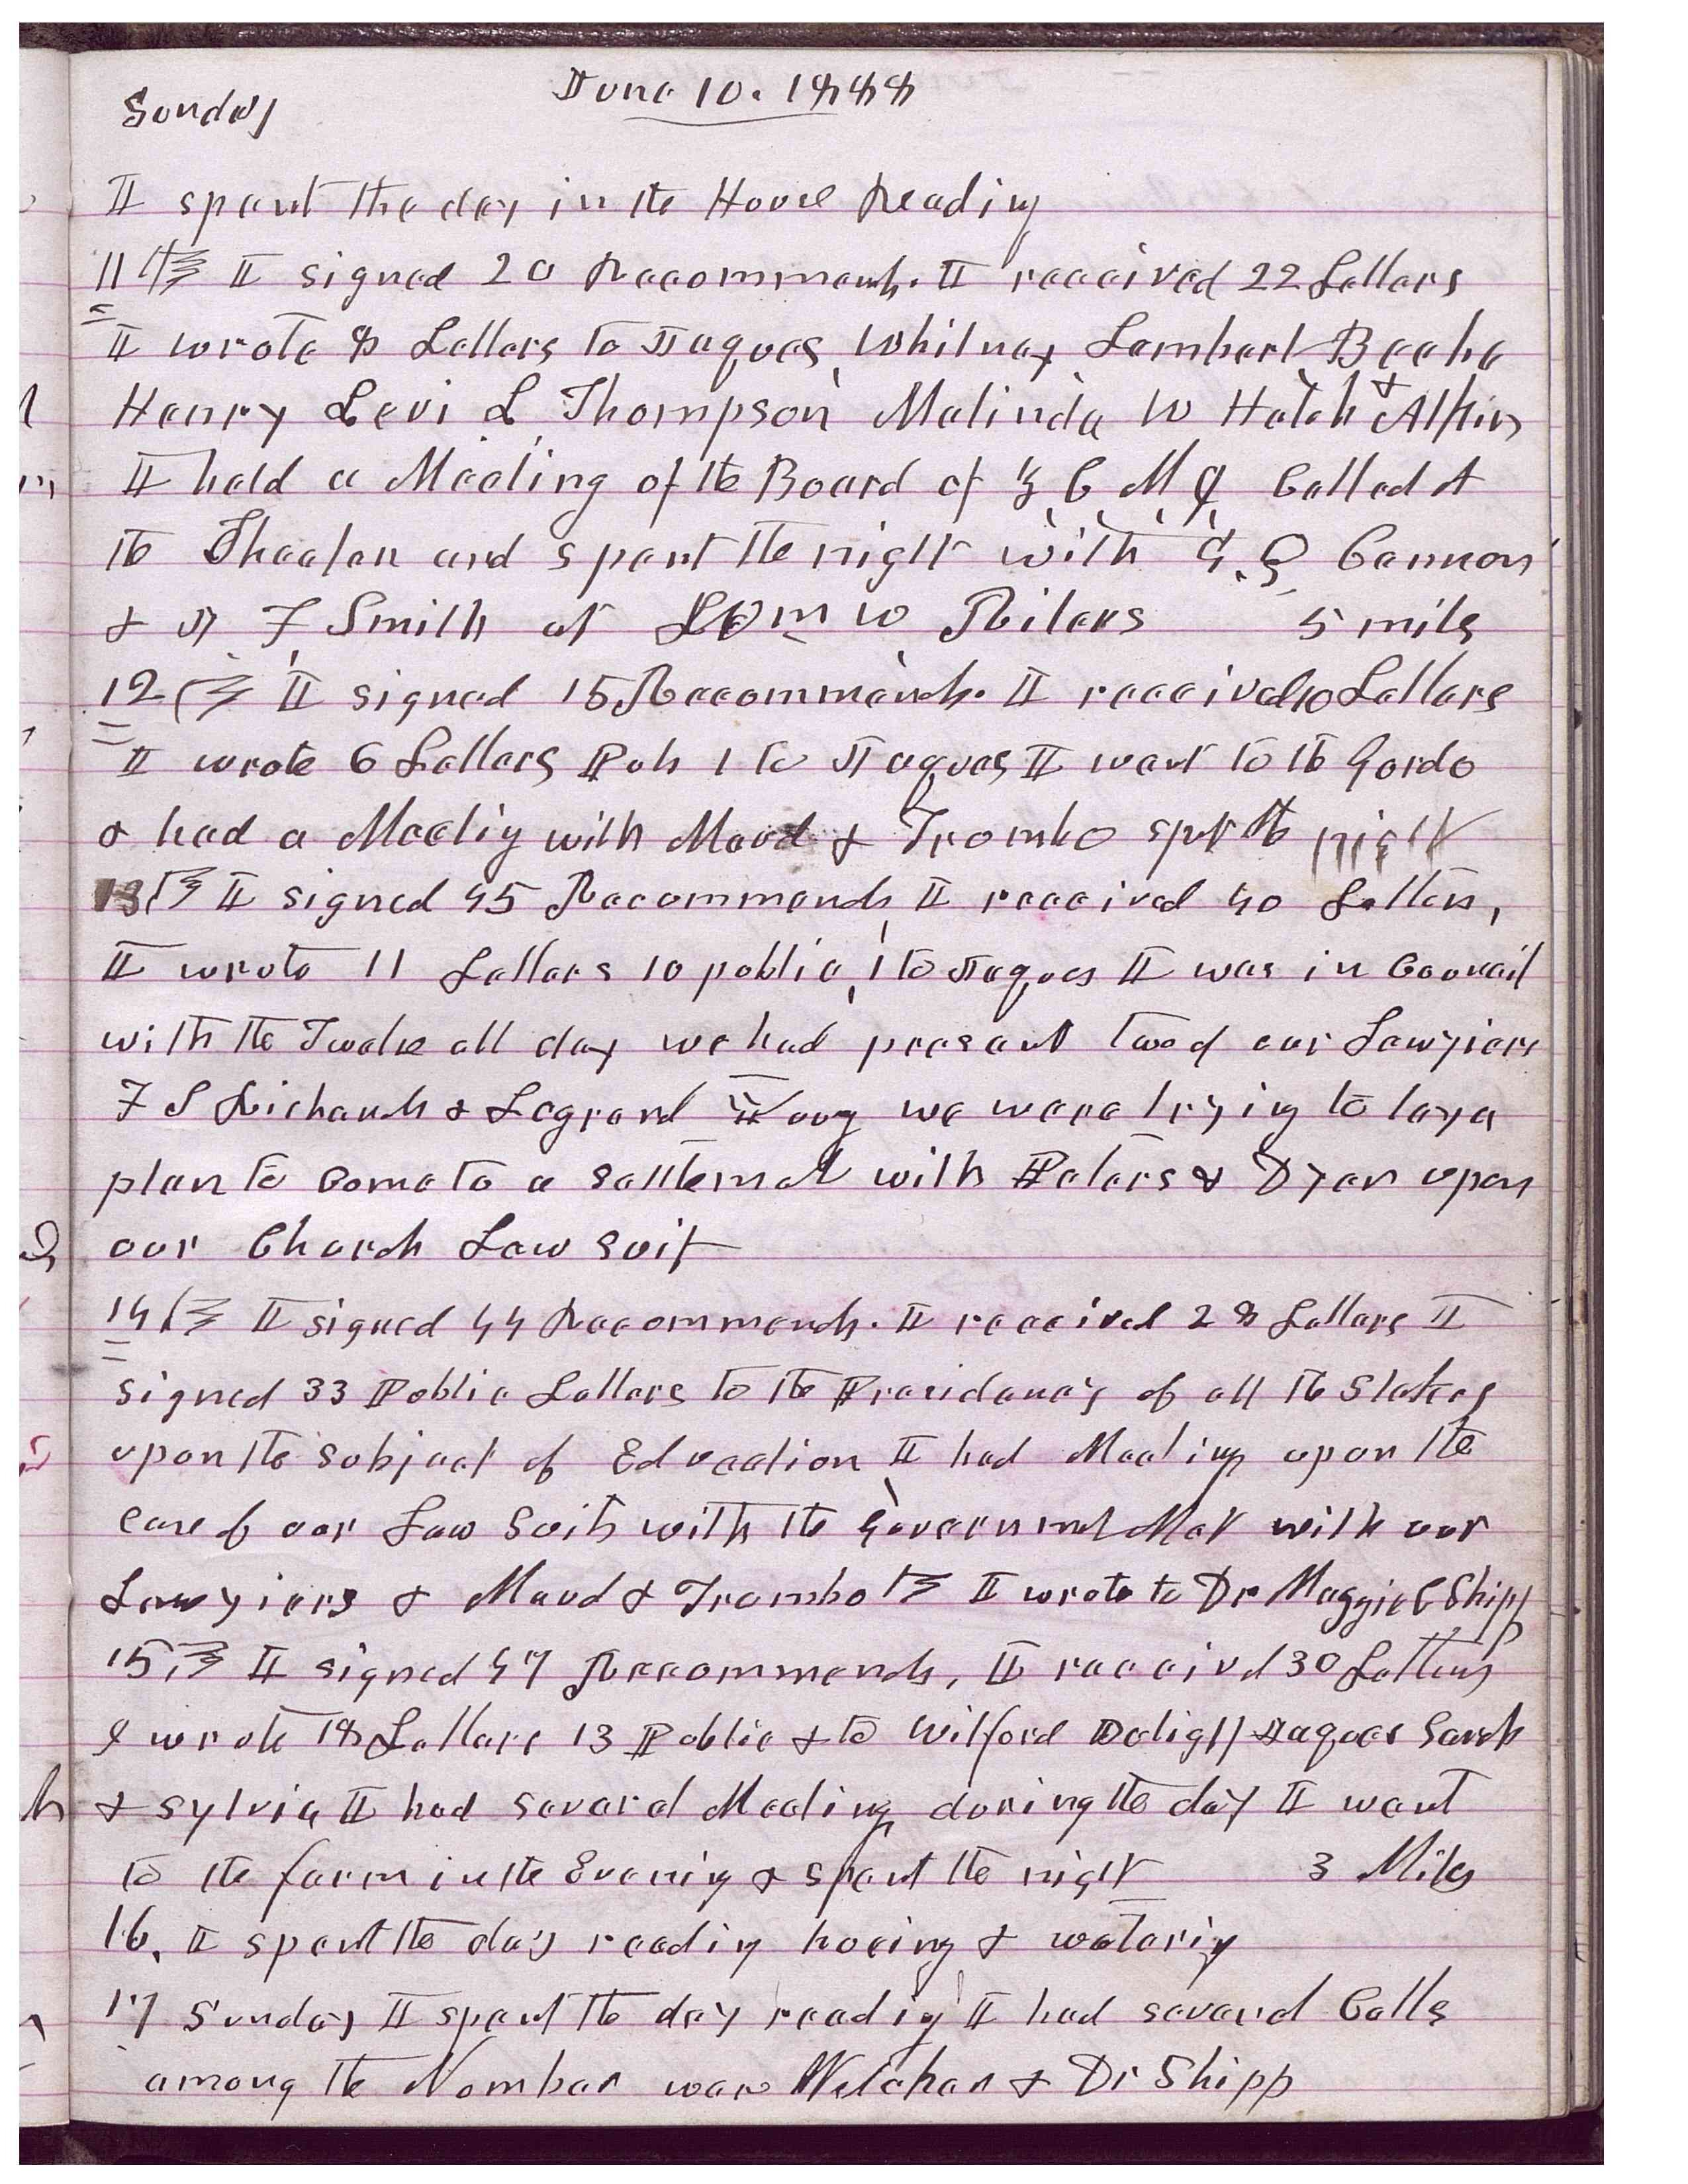 June 10. 1888
Sunday
I spent the day in the House Reading
11th I signed 20 Recommends. I received 22 Letters
I wrote 8 Letters to Jaques, Whitney Lambert Beebe
Henry Levi L Thompson, Malinda W Hatch & Atkin
I held a Meeting of the Board of Z, C, M, I, Called At
the Theater and spent the night with G. Q. Cannon
& J, F, Smith at L W Riters 5 mils
12th I signed 15 Recommends. I received 10 Letters
I wrote 6 Letters Pub 1 to Jaques I went to the Gardo
& had a Meetig with Maud & Trombo spt the night
13th I signed 45 Recommends, I received 40 Letters,
I wrote 11 Letters 10 public, 1 to Jaques I was in Councail
with the Twelve all day we had present two of our Lawyiers
F S Richards & Legrand Young we were trying to lay a
plan to come to a settlemet with Peters & Dyer upon
our Church Law suit
14th I signed 44 Recommends. I received 28 Letters I
signed 33 Public Letters to the Presidency of all the Stakes
upon the subject of Education I had Meetings upon the
case of our Law Suits with the Governmet Met with our
Lawyiers & Maud & Trombo I wrote to Dr Maggie C Shipp
15th I signed 47 Recommends, I received 30 Letters
I wrote 18 Letters 13 Public & to Wilford Jaques Sarah
& Sylvia I had several Meetings during the day I went
to the farm in the Evenig & spent the night 3 Miles
16. I spent the day readig hoeing & waterig
17 Sunday I spent the day readig I had several Calls
among the Number was & Dr Shipp